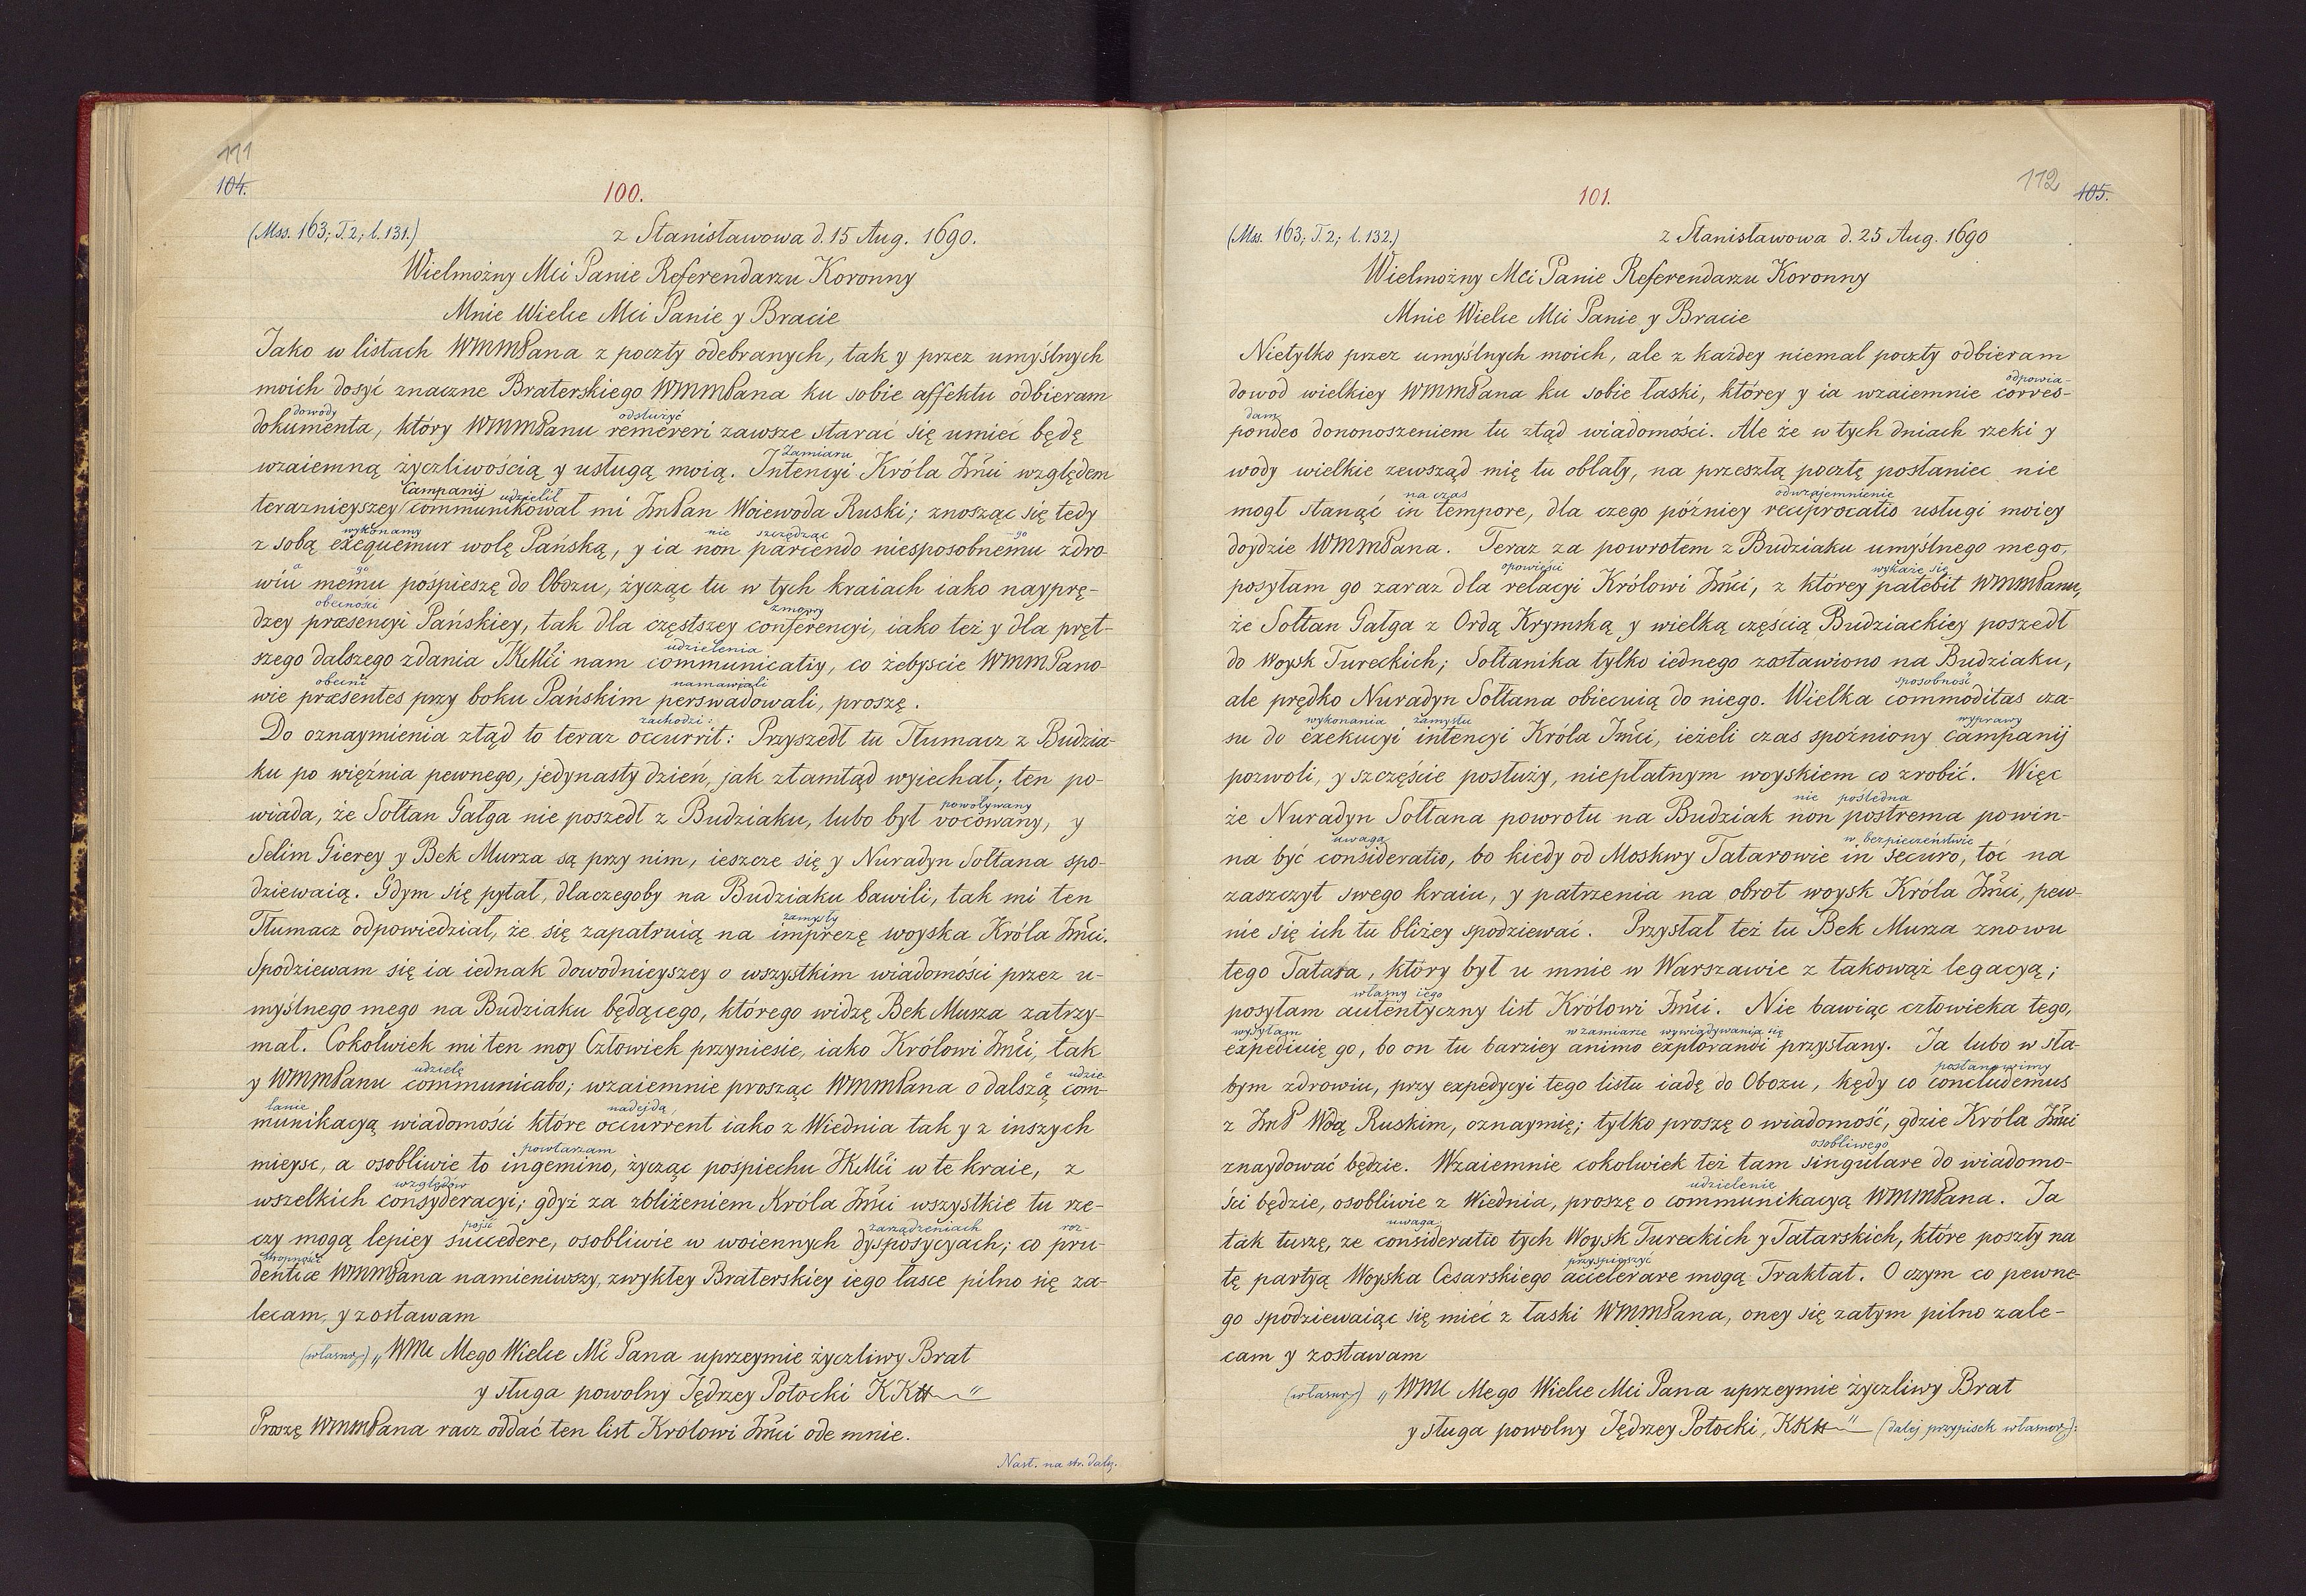 111
104.
100.
(Mss. 163; T.2; l. 131.)
z Stanisławowa d. 15 Aug. 1690.
Wielmożny Mci Panie Referendarzu Koronny
Mnie Wielce Mci Panie y Bracie
Jako w listach WMMPana z poczty odebranych, tak y przez umyślnych
moich dosyć znaczne Braterskiego WMMPana ku sobie affektu odbieram
dowody odsłużyć
dokumenta, który WMMPanu remereri zawsze starać się umieć będę
zamiaru
wzaiemną życzliwością y usługą moią. Intencyi Króla Jmci względem
Campanij udzielił
teraznieyszey communikował mi JmPan Woiewoda Ruski; znosząc się tedy
wykonamy nie szczędząc -go
z sobą exequemur wolę Pańską, y ia non parcendo niesposobnemu zdro-
a -go
wiu memu pośpieszę do Obozu, życząc tu w tych kraiach iako nayprę-
obecności zmowy
dzey præsencyi Pańskiey, tak dla częstszey conferencyi, iako też y dla pręt-
udzielenia
szego dalszego zdania JKMci nam communicatiy, co żebyście WMMPano-
obecni namawiali
wie præsentes przy boku Pańskim perswadowali, proszę.
zachodzi:
Do oznaymienia ztąd to teraz occurrit: Przyszedł tu Tłumacz z Budzia-
ku po więźnia pewnego, jedynasty dzień, jak ztamtąd wyiechał; ten po-
powoływany
wiada, że Sołtan Gałga nie poszedł z Budziaku, lubo był vocowany, y
Selim Gierey y Bek Murza są przy nim, ieszcze się y Nuradyn Sołtana spo-
dziewaią. Gdym się pytał, dlaczegoby na Budziaku bawili, tak mi ten
zamysły
Tłumacz odpowiedział, że się zapatruią na imprezę woyska Króla Jmci.
Spodziewam się ia iednak dowodnieyszey o wszystkim wiadomości przez u-
myślnego mego na Budziaku będącego, którego widzę Bek Murza zatrzy-
mał. Cokolwiek mi ten moy Człowiek przyniesie, iako Królowi Jmci, tak
udzielę e udzie-
y WMMPanu communicabo; wzaiemnie prosząc WMMPana o dalszą com-
lanie nadejdą,
munikacyą wiadomości które occurrent iako z Wiednia tak y z inszych
powtarzam
mieysc, a osobliwie to ingemino, życząc pośpiechu JKMci w te kraie, z
względów
wszelkich consyderacyi; gdyż za zbliżeniem Króla Jmci wszystkie tu rze-
pójść zarządzeniach roz-
czy mogą lepiey succedere, osobliwie w woiennych dyspozycyach; co pru-
tropności
dentiæ WMMPana namieniwszy, zwykłey Braterskiey iego łasce pilno się za-
lecam, y zostawam
(własnor.) „WMc Mego Wielce Mć Pana uprzeymie życzliwy Brat
y sługa powolny Jędrzey Potocki KKH"
Proszę WMMPana racz oddać ten list Królowi Jmci ode mnie.
Nast. na str. dalsz.
112
105.
101.
(Mss. 163; T.2; l. 132.)
z Stanisławowa d. 25 Aug. 1690
Wielmożny Mci Panie Referendarzu Koronny
Mnie Wielce Mci Panie y Bracie
Nietylko przez umyślnych moich, ale z każdey niemal poczty odbieram
odpowia-
dowod wielkiey WMMPana ku sobie łaski, którey y ia wzaiemnie corres-
dam
pondeo dononoszeniem tu ztąd wiadomości. Ale że w tych dniach rzeki y
wody wielkie zewsząd mię tu oblały, na przeszłą pocztę posłaniec nie
na czas odwzajemnienie
mogł stanąć in tempore, dla czego późniey reciprocatio usługi moiey
doydzie WMMPana. Teraz za powrotem z Budziaku umyślnego mego,
opowieści wykaże się
posyłam go zaraz dla relacyi Królowi Jmci, z którey patebit WMMPanu,
że Sołtan Gałga z Ordą Krymską y wielką częścią Budziackiey poszedł
do Woysk Tureckich; Sołtanika tylko iednego zostawiono na Budziaku,
sposobność
ale prędko Nuradyn Sołtana obiecuią do niego. Wielka commoditas cza-
wykonania zamysłu wyprawy
su do exekucyi intencyi Króla Jmci, ieżeli czas spoźniony campanij
pozwoli, y szczęście posłuży, niepłatnym woyskiem co zrobić. Więc
nie poślednia
że Nuradyn Sołtana powrotu na Budziak non postrema powin-
uwaga w bezpieczeństwie
na być consideratio, bo kiedy od Moskwy Tatarowie in securo, toć na
zaszczyt swego kraiu, y patrzenia na obrot woysk Króla Jmci, pew-
nie się ich tu bliżey spodziewać. Przysłał też tu Bek Murza znowu
tego Tatara, który był u mnie w Warszawie z takowąż legacyą;
własny iego
posyłam autentyczny list Królowi Jmci. Nie bawiąc człowieka tego,
wysyłam w zamiarze wywiadywania się
expediuię go, bo on tu barziey animo explorandi przysłany. Ja lubo w sła-
postanowimy
bym zdrowiu, przy expedycyi tego listu iadę do Obozu, kędy co concludemus
z JmP Wdą Ruskim, oznaymię; tylko proszę o wiadomość, gdzie Króla Jmci
osobliwego
znaydować będzie. Wzaiemnie cokolwiek też tam singulare do wiadomo-
udzielenie
ści będzie, osobliwie z Wiednia, proszę o communikacyą WMMPana. Ja
uwaga
tak tuszę, że consideratio tych Woysk Tureckich y Tatarskich, które poszły na
przyspieszyć
tę partyą Woyska Cesarskiego accelerare mogą Traktat. O czym co pewne-
go spodziewaiąc się mieć z łaski WMMPana, oney się zatym pilno zale-
cam y zostawam
(własnor.) „WMc Mego Wielce Mci Pana uprzeymie życzliwy Brat
y sługa powolny Jędrzey Potocki, KKH" (dalej przypisek własnor.):